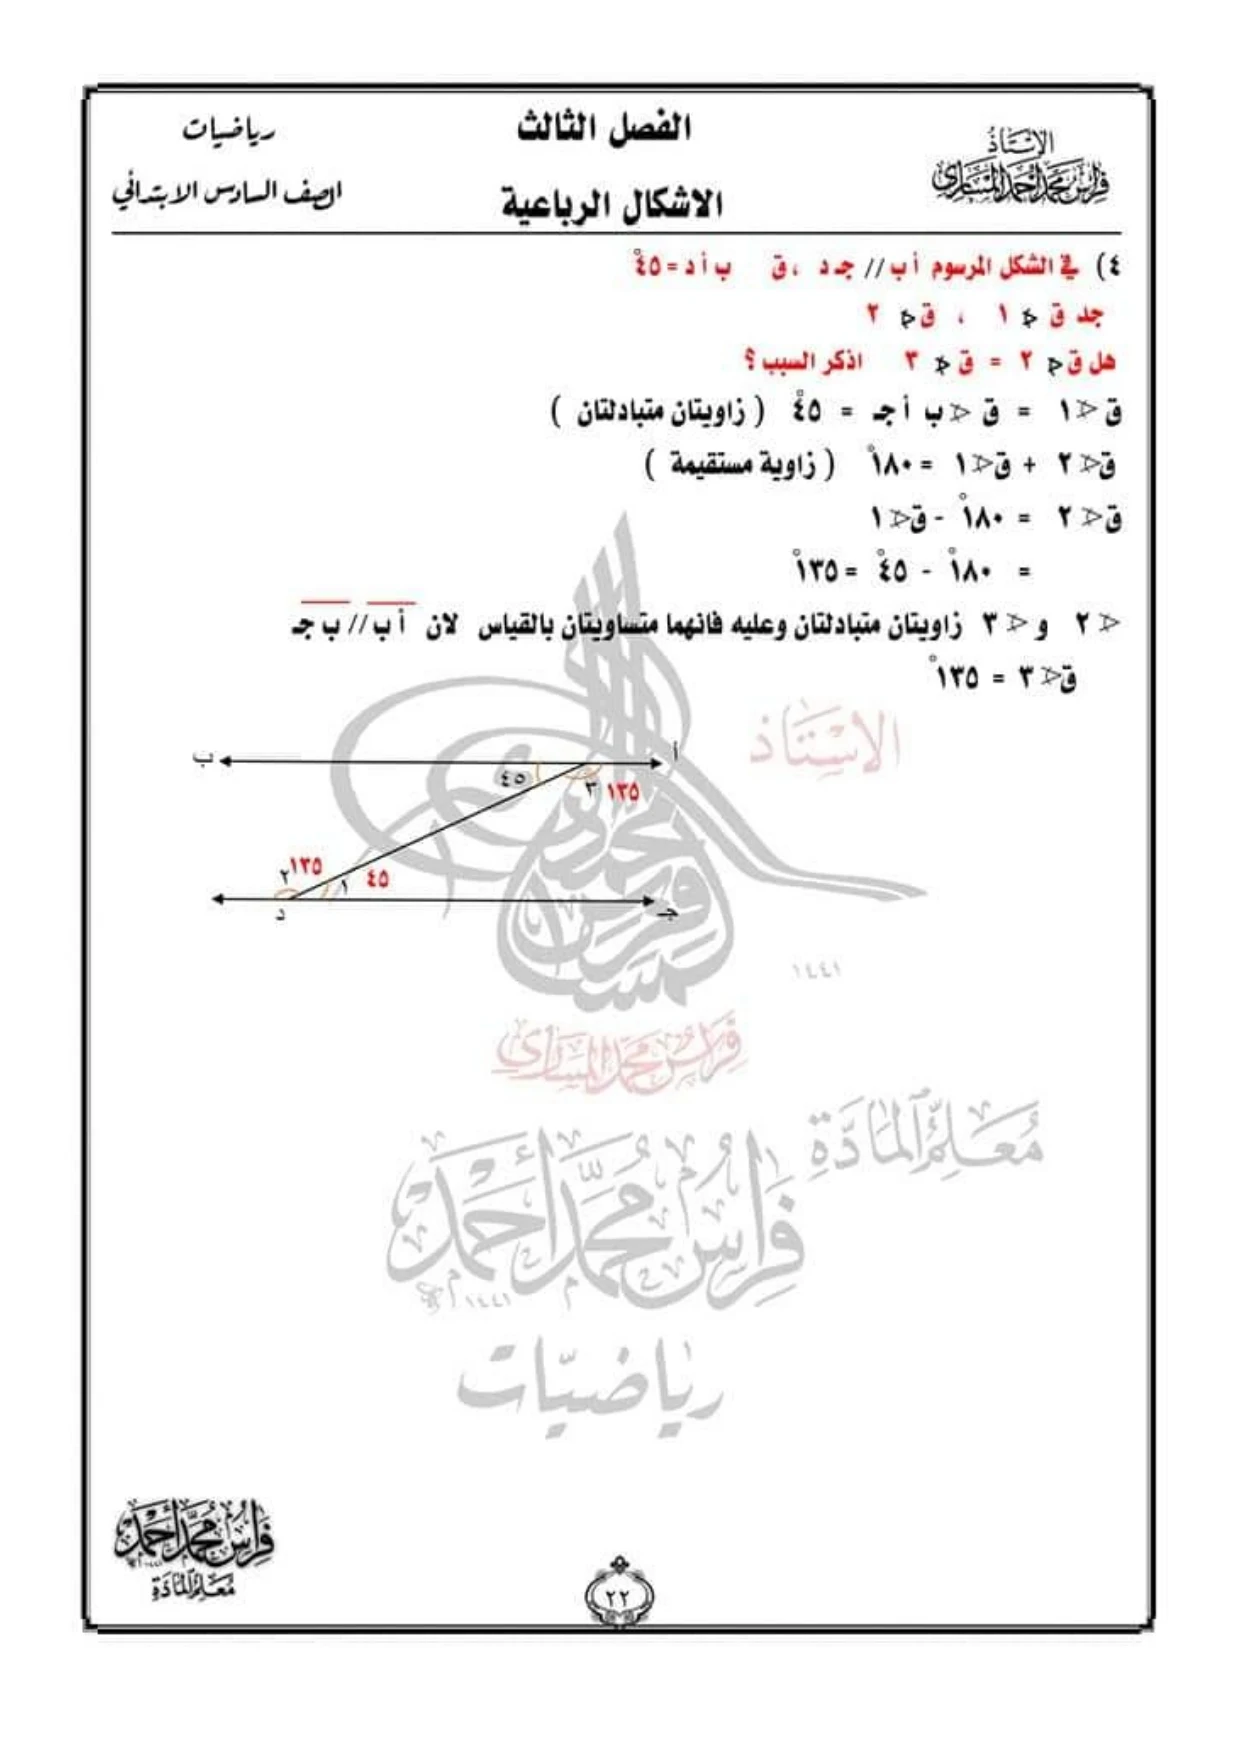 الاستاذ
فراس محمد احمد المساري
الفصل الثالث
الاشكال الرباعية
رياضيات
الصف السادس الابتدائي
٤) في الشكل المرسوم أ ب // جـ د ، ق ب أ د = ٤٥ْ
جد ق ∢ ١ ، ق ∢ ٢
هل ق ∢ ٢ = ق ∢ ٣ اذكر السبب ؟
ق ∢ ١ = ق ∢ ب أ جـ = ٤٥ْ ( زاويتان متبادلتان )
ق ∢ ٢ + ق ∢ ١ = ١٨٠ْ ( زاوية مستقيمة )
ق ∢ ٢ = ١٨٠ْ - ق ∢ ١
= ١٨٠ْ - ٤٥ْ = ١٣٥ْ
∢ ٢ و ∢ ٣ زاويتان متبادلتان وعليه فانهما متساويتان بالقياس لان أ ب // ب جـ
ق ∢ ٣ = ١٣٥ْ
الاستاذ
أ
ب
٤٥
٣ ١٣٥
٢ ١٣٥
١ ٤٥
د
جـ
١٤٤١
فراس محمد المساري
معلم المادة
فراس محمد أحمد
١٤٤١
رياضيات
فراس محمد أحمد
معلم المادة
٢٢